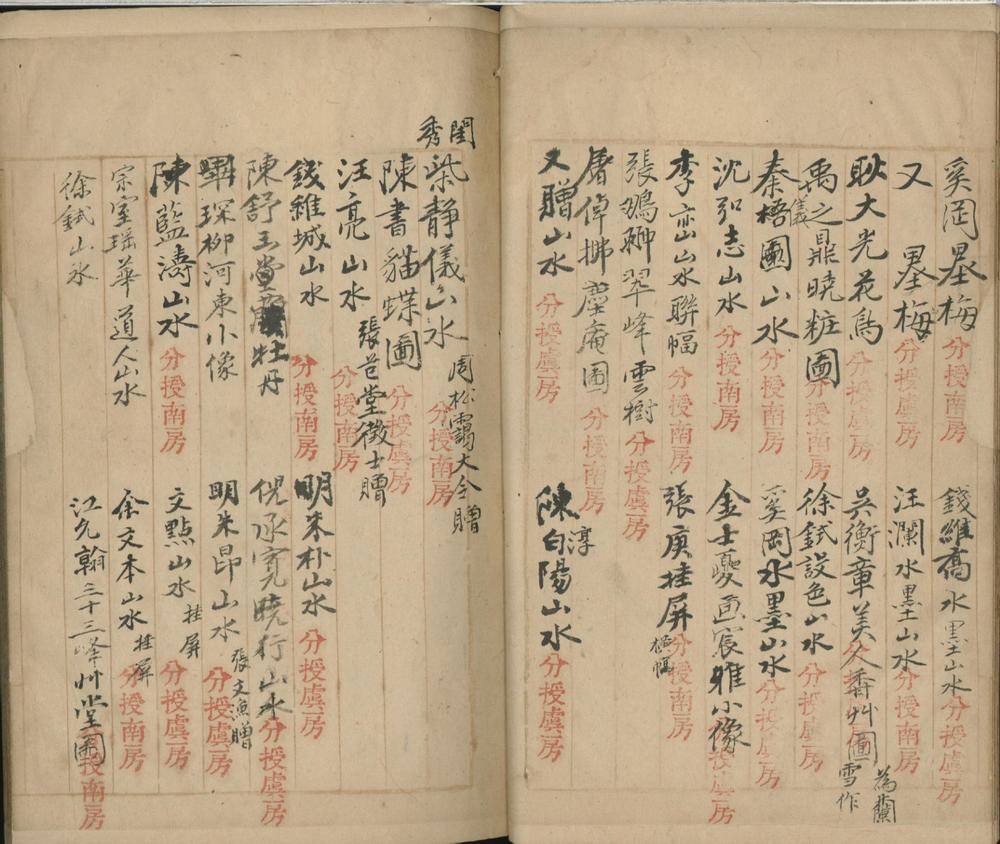 奚岡墨梅 分授虞房
錢維喬水墨山水 分授虞房
又 墨梅 分授虞房
汪瀾水墨山水 分授南房
耿大光花鳥 分授虞房
吳衡章美人香艸圖 為蘭雪作 分授虞房
禹之鼎曉粧圖 分授虞房
徐鉽設色山水 分授虞房
秦儀梧圃山水 分授虞房
奚岡水墨山水 分授虞房
沈弘志山水 分授虞房
金士夔画宸雅小像 分授虞房
李峦山水聯幅 分授南房
張庚挂屏 橫幅 分授南房
張鵷翀翠峰雲樹 分授虞房
屠倬拂塵庵圖 分授南房
陳白陽淳山水 分授虞房
又贈山水 分授虞房
閨秀
柴靜儀山水 周松靄大令贈 分授南房
陳書貓蝶圖 分授虞房
汪亮山水 張芑堂徵士贈 分授南房
錢維城山水 分授南房
明朱朴山水 分授虞房
陳舒玉堂牡丹
倪承寬曉行山水 分授虞房
畢琛柳河東小像
明朱昂山水 張文漁贈 分授虞房
陳藍濤山水 分授南房
文點山水 挂屏 分授虞房
宗室瑶華道人山水
余文本山水 挂屏 分授南房
徐鉽山水
江允翰三十三峰艸堂圖 分授南房